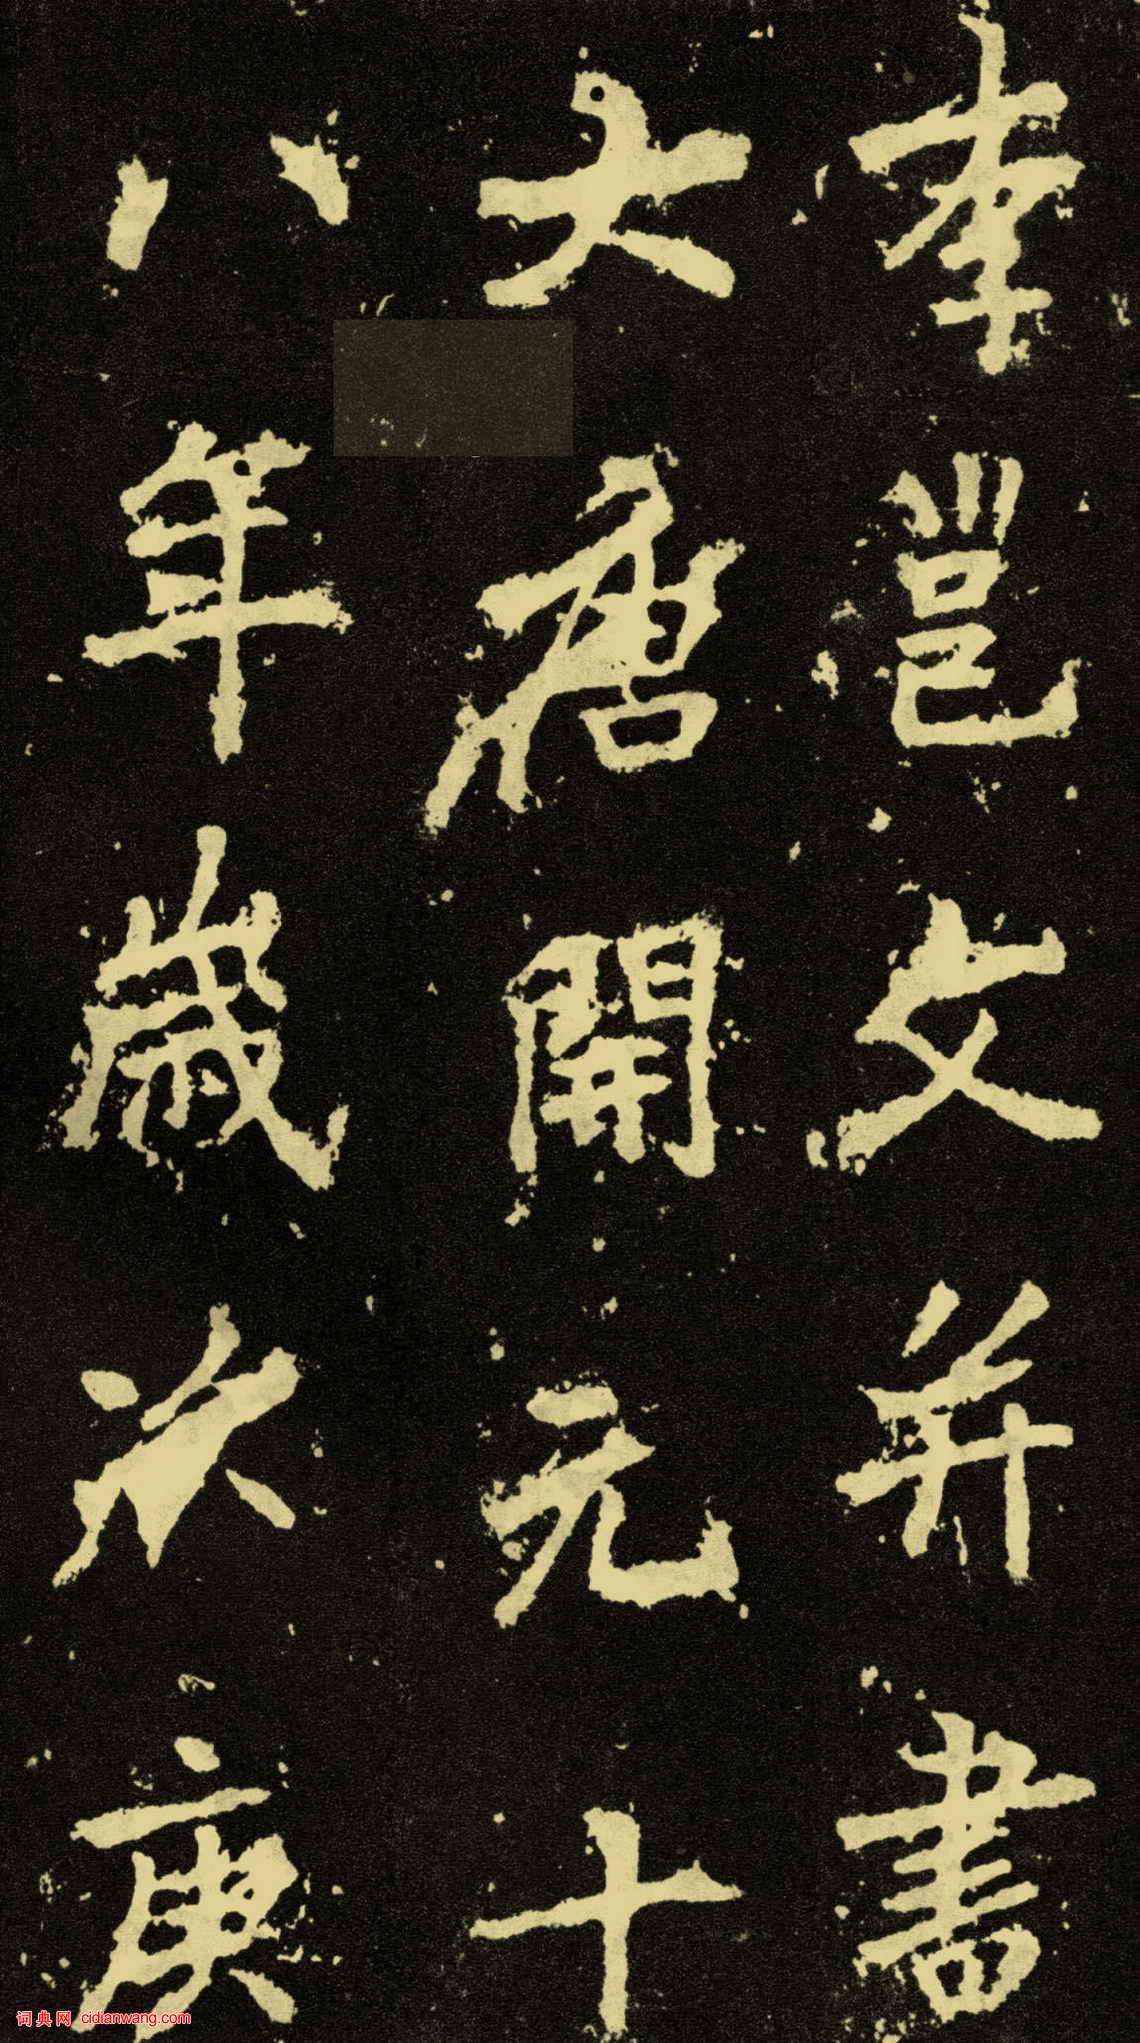 李邕文并書
大唐開元十
八年歲次庚
词典网 cidianwang.com